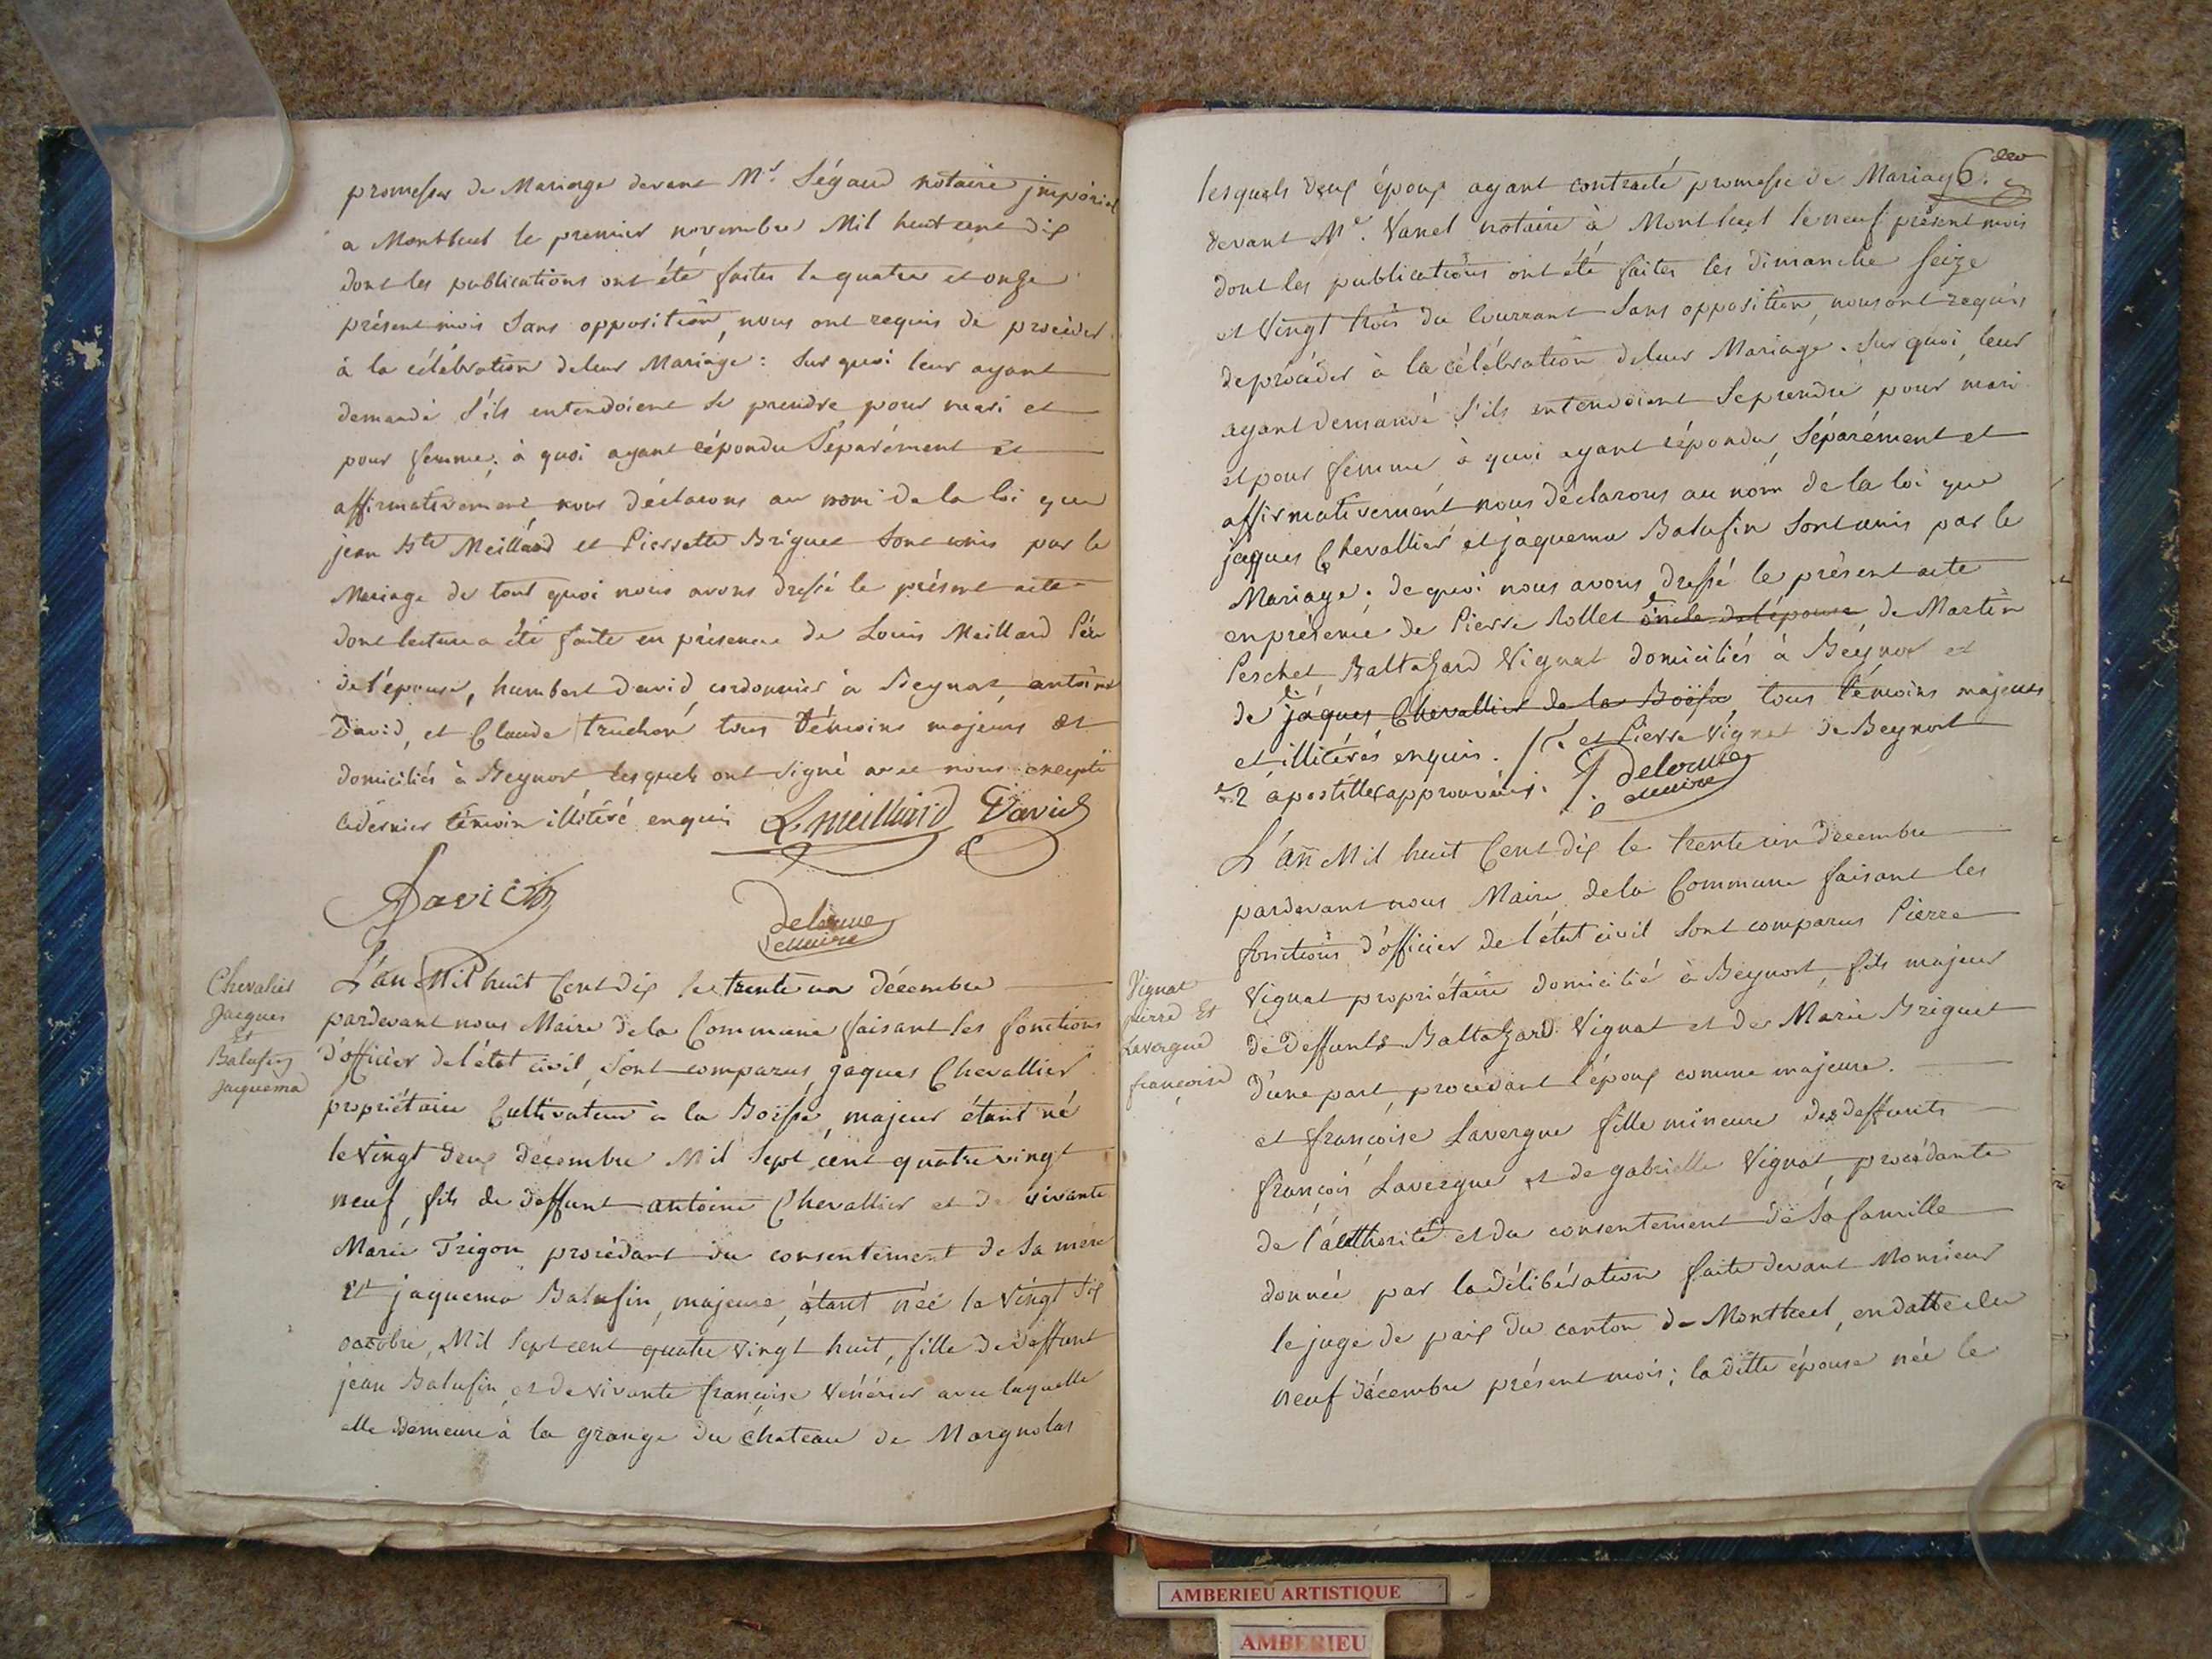 promesses de Mariage devant Mr. Ségaud notaire jmpérial
a Montluel le premier novembre Mil huit cent dix
dont les publications ont été faites le quatre et onze
présent mois sans opposition, nous ont requis de procéder
à la célébration deleur Mariage : sur quoi leur ayant
demandé s'ils entendoient se prendre pour mari et
pour femme; à quoi ayant répondu séparément et
affirmativement nous déclarons au nom de la loi que
jean Bte Meilland et Pierrette Briguet sont unis par le
Mariage de tout quoi nous avons dressé le présent acte
dont lecture a été faite en présence de Louis Meillard Père
de l'épouse, humbert david cordonnier à Beynost, antoine
David, et Claude truchon tous témoins majeurs et
domiciliés à Beynost, lesquels ont signé avec nous excepté
ce dernier témoin illitéré enquis L meilland David
David
delorme
maire
Chevalier
Jacques
Et
Balufin
jaquema
L'an Mil huit Cent dix le trente un décembre
pardevant nous Maire de la Commune faisant les fonctions
d'officier de l'état civil, sont comparus jaques Chevallier
propriétaire Cultivateur à la Boïsse, majeur étant né
le vingt deux décembre Mil sept cent quatre vingt
neuf, fils de deffunt antoine Chevallier et de vivante
Marie Trigon procédant du consentement de sa mère
Et jaquema Balufin, majeure, étant née le vingt six
octobre, Mil sept cent quatre vingt huit, fille de deffunt
jean Balufin, et de vivante françoise Vénérier avec laquelle
elle demeure à la grange du château de Margnolas
6
lesquels deux époux ayant contracté promesse de Mariage
devant Me. Vanel notaire à Montluel le neuf présent mois
dont les publications ont été faites les dimanche seize
et vingt trois du courrant sans opposition, nous ont requis
de procéder à la célébration deleur Mariage. sur quoi leur
ayant demandé s'ils entendoient se prendre pour mari
et pour femme à quoi ayant répondu séparément et
affirmativement nous déclarons au nom de la loi que
jaques Chevallier et jaquema Balufin sont unis par le
Mariage. de quoi nous avons dressé le présent acte
en présence de Pierre Rollet oncle de l'épouse, de Martin
Perchet, Baltazard Vignat domiciliés à Beynost et
de jaques Chevallier de la Boïsse, tous témoins majeurs
et illitérés enquis. et Pierre Vignat de Beynost
2 apostilles approuvées. delorme
maire
Vignat
pierre Et
Lavergne
françoise
L'an Mil huit Cent dix le trente un décembre
pardevant nous Maire de la Commune faisant les
fonctions d'officier de l'état civil sont comparus Pierre
Vignat propriétaire domicilié à Beynost, fils majeur
de deffunts Baltazard Vignat et de Marie Briguet
d'une part, procédant l'époux comme majeure.
et françoise Lavergne fille mineure des deffunts
françois Lavergne et de gabrielle Vignat, procédante
de l'authorité et du consentement de sa famille
donnée par la délibération faite devant Monsieur
le juge de paix du canton de Montluel, en datte du
neuf décembre présent mois; la ditte épouse née le
AMBERIEU ARTISTIQUE
AMBERIEU